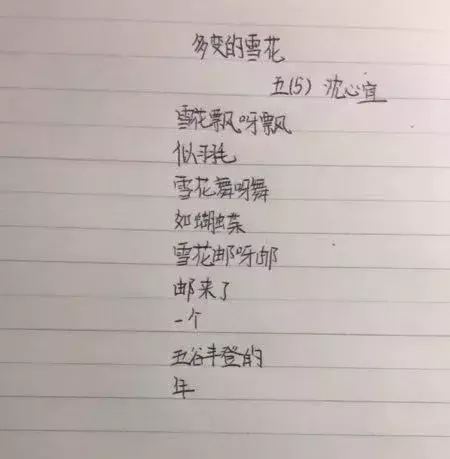 多变的雪花
五(5) 沈心宜
雪花飘呀飘
似羽毛
雪花舞呀舞
如蝴蝶
雪花邮呀邮
邮来了
一个
五谷丰登的
年